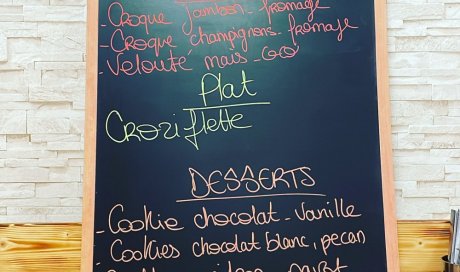 - Croque jambon - fromage
- Croque champignons - fromage
- Velouté maïs - coco
Plat
Croziflette
DESSERTS
- Cookie chocolat - vanille
- Cookies chocolat blanc, pecan